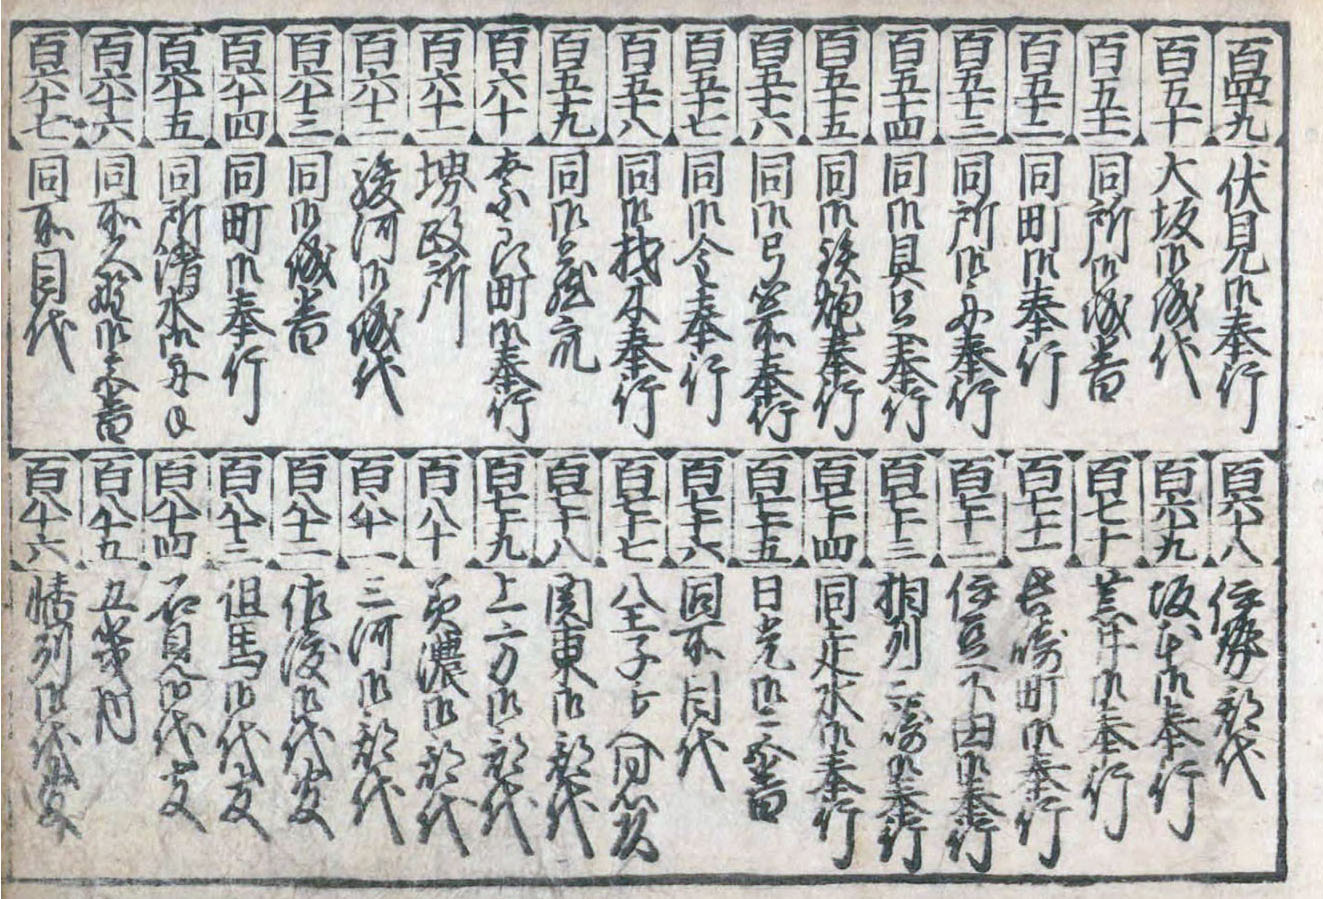 百四十九 伏見御奉行
百五十 大坂御城代
百五十一 同所御城番
百五十二 同町御奉行
百五十三 同所御舟奉行
百五十四 同御具足奉行
百五十五 同御鉄炮奉行
百五十六 同御弓箭奉行
百五十七 同御金奉行
百五十八 同御材木奉行
百五十九 同御蔵衆
百六十 奈良町御奉行
百六十一 堺政所
百六十二 駿河御城代
百六十三 同御城番
百六十四 同町御奉行
百六十五 同所清水御舟手
百六十六 同所久能御番
百六十七 同所目代
百六十八 伊勢郡代
百六十九 坂本御奉行
百七十 荒井御奉行
百七十一 長崎町御奉行
百七十二 伊豆下田御奉行
百七十三 相列三崎御奉行
百七十四 同走水御奉行
百七十五 日光御番
百七十六 同所目代
百七十七 八王子
百七十八 関東御郡代
百七十九 上方御郡代
百八十 美濃御郡代
百八十一 三河御郡代
百八十二 備後御代官
百八十三 但馬御代官
百八十四 石見御代官
百八十五 五畿内
百八十六 御代官